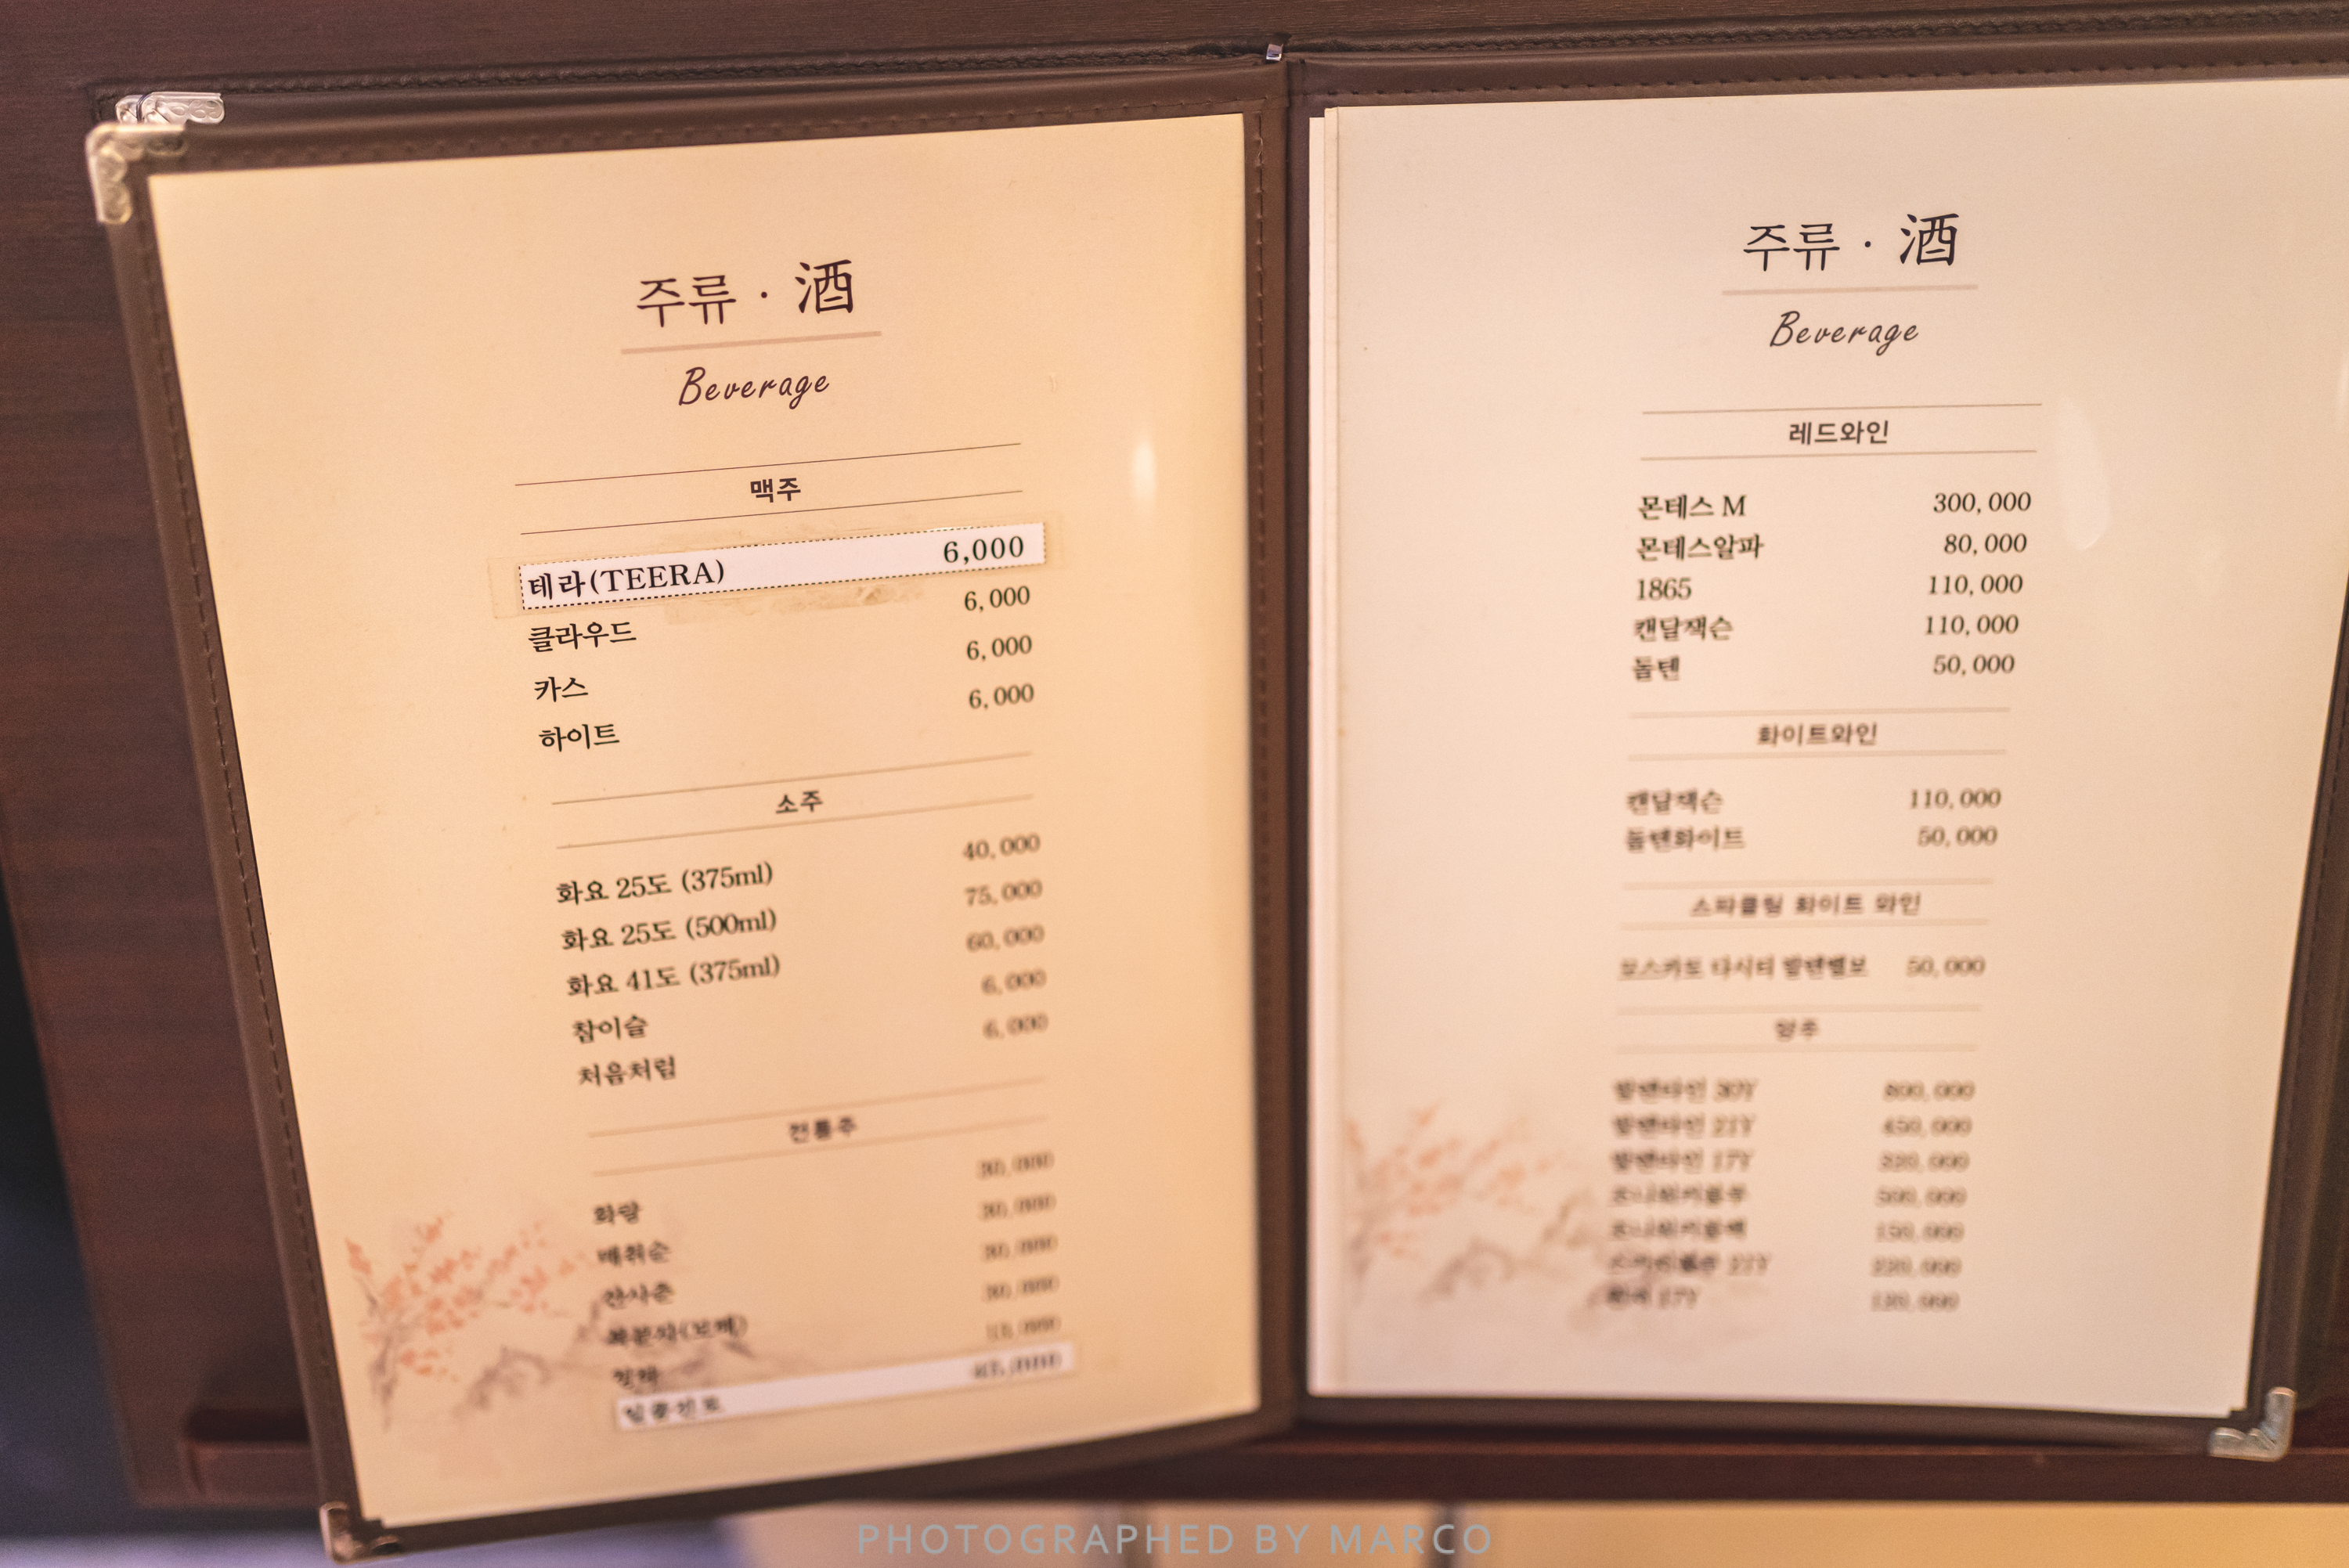 주류 · 酒
Beverage
맥주
테라(TEERA) 6,000
클라우드 6,000
카스 6,000
하이트 6,000
소주
화요 25도 (375ml) 40,000
화요 25도 (500ml) 75,000
화요 41도 (375ml) 60,000
참이슬 6,000
처음처럼 6,000
전통주
화랑 30,000
매취순 30,000
산사춘 30,000
복분자(보해) 30,000
주류 · 酒
Beverage
레드와인
몬테스 M 300,000
몬테스알파 80,000
1865 110,000
캔달잭슨 110,000
돔텐 50,000
화이트와인
캔달잭슨 110,000
돔텐화이트 50,000
스파클링 화이트 와인
50,000
양주
발렌타인 30Y 800,000
발렌타인 21Y 450,000
발렌타인 17Y
PHOTOGRAPHED BY MARCO